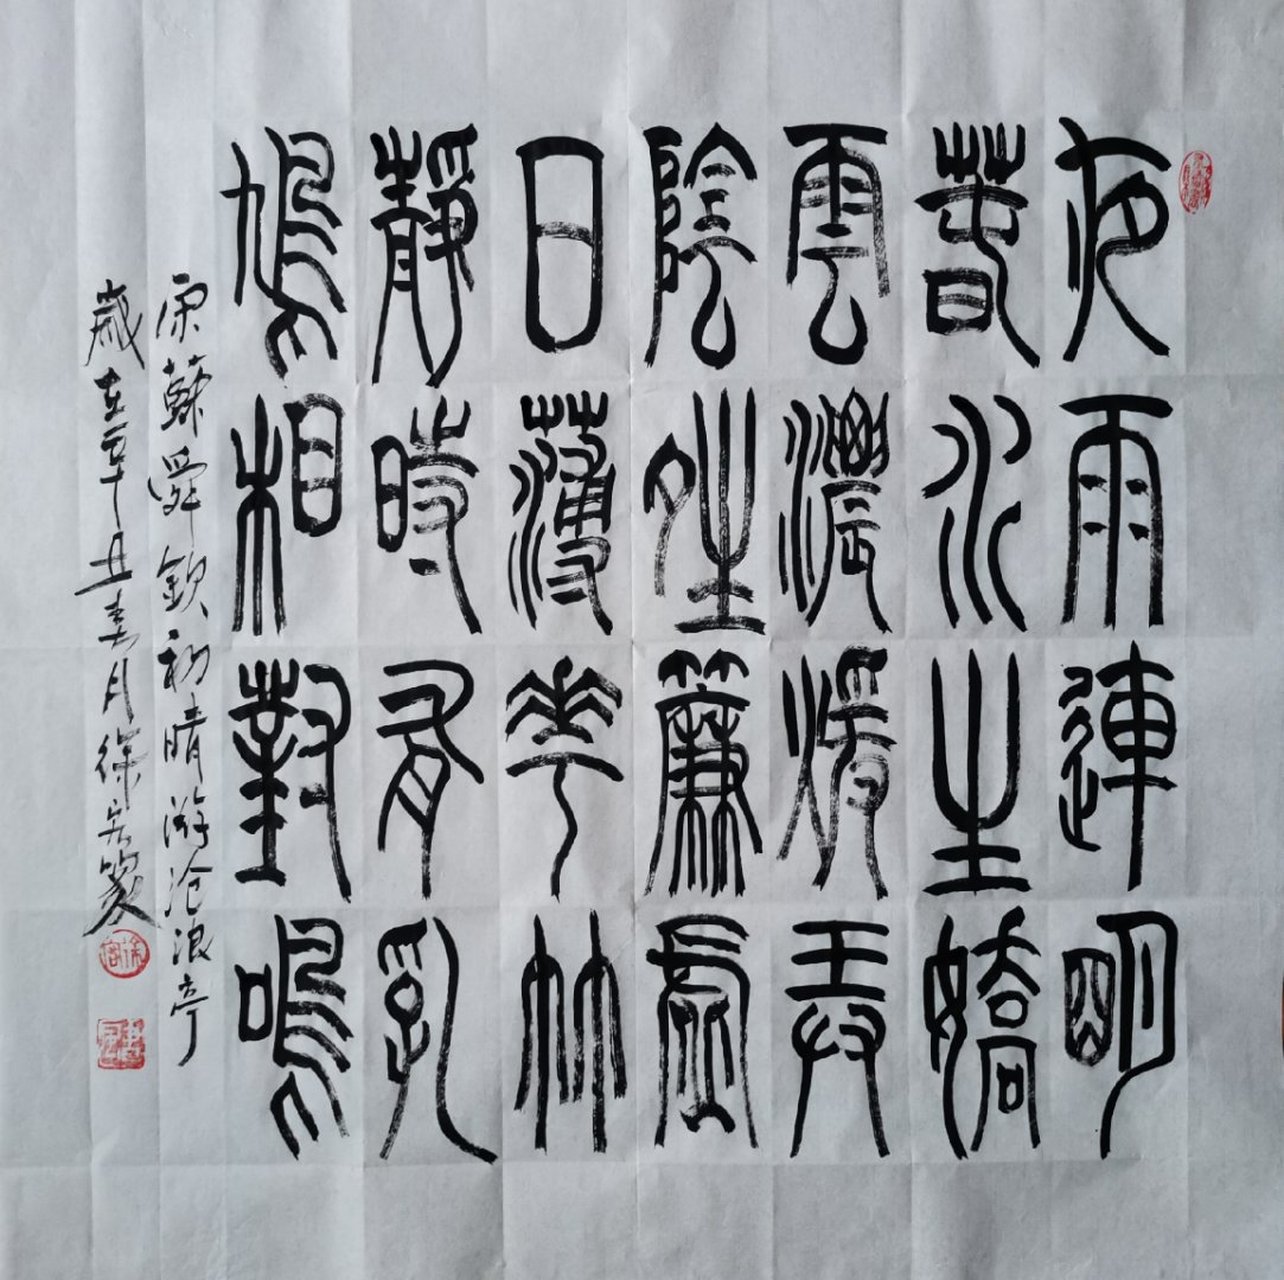 夜雨連明
春水生嬌
雲濃暖弄
陰夝簾虛
日薄花竹
靜時有乳
鳩相對鳴
宋蘇舜欽初晴游沧浪亭
歲在辛丑春月徐篆